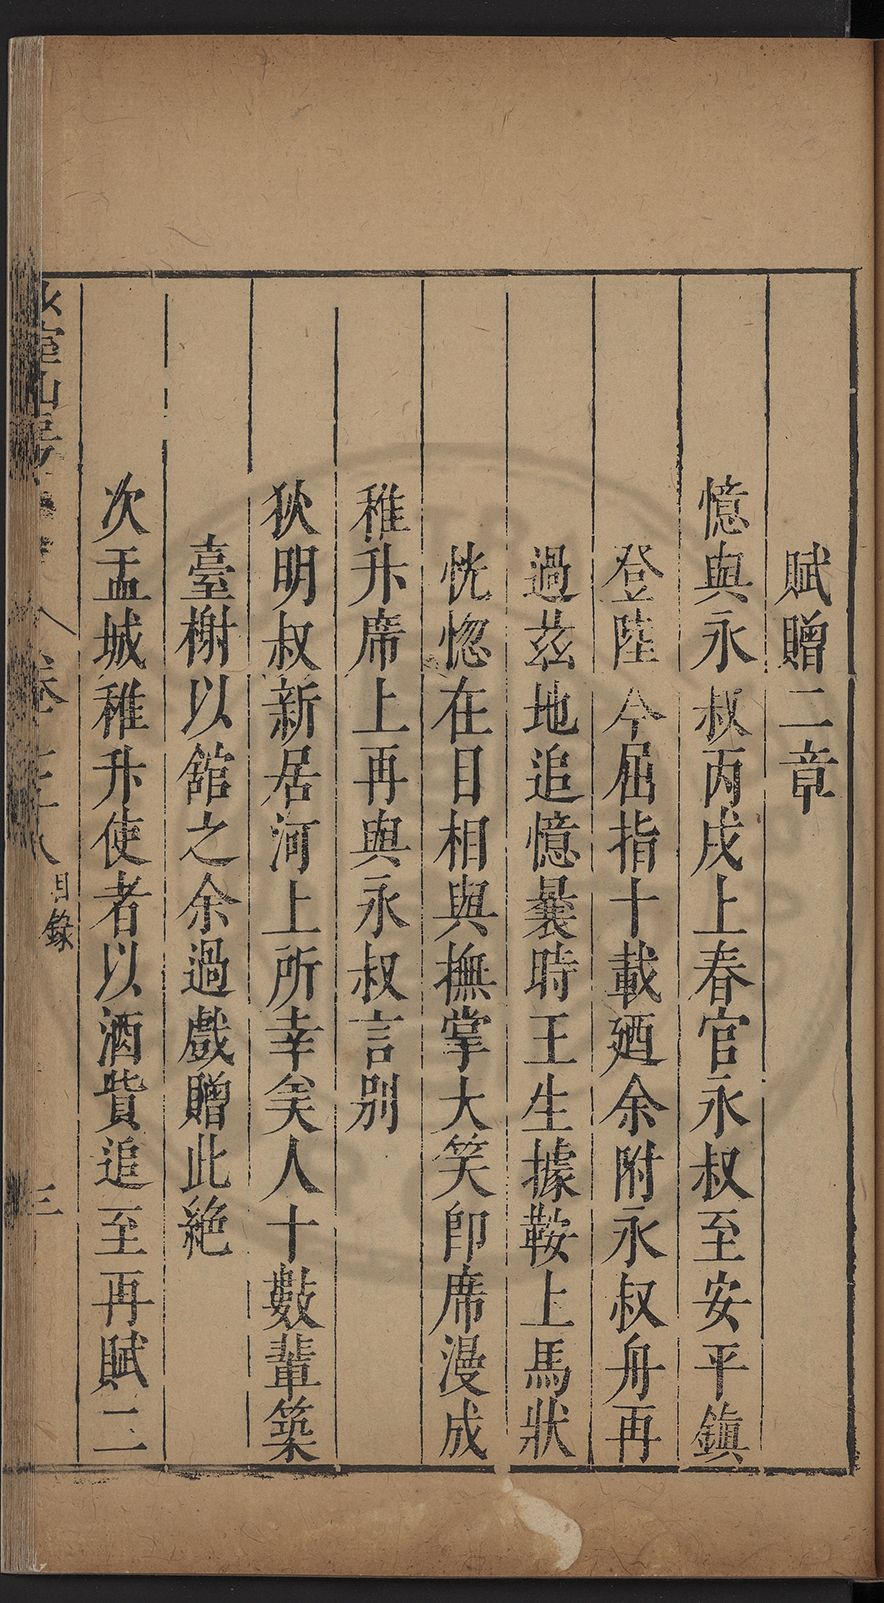 賦贈二章
憶與永叔丙戌上春官永叔至安平鎮
登陸今屈指十載廼余附永叔舟再
過茲地追憶曩時王生據鞍上馬狀
恍惚在目相與撫掌大笑即席漫成
稚升席上再與永叔言別
狄明叔新居河上所幸矣人十數輩築
臺榭以舘之余過戲贈此絶
次孟城稚升使者以酒貲追至再賦二
室山房
卷
目錄
三